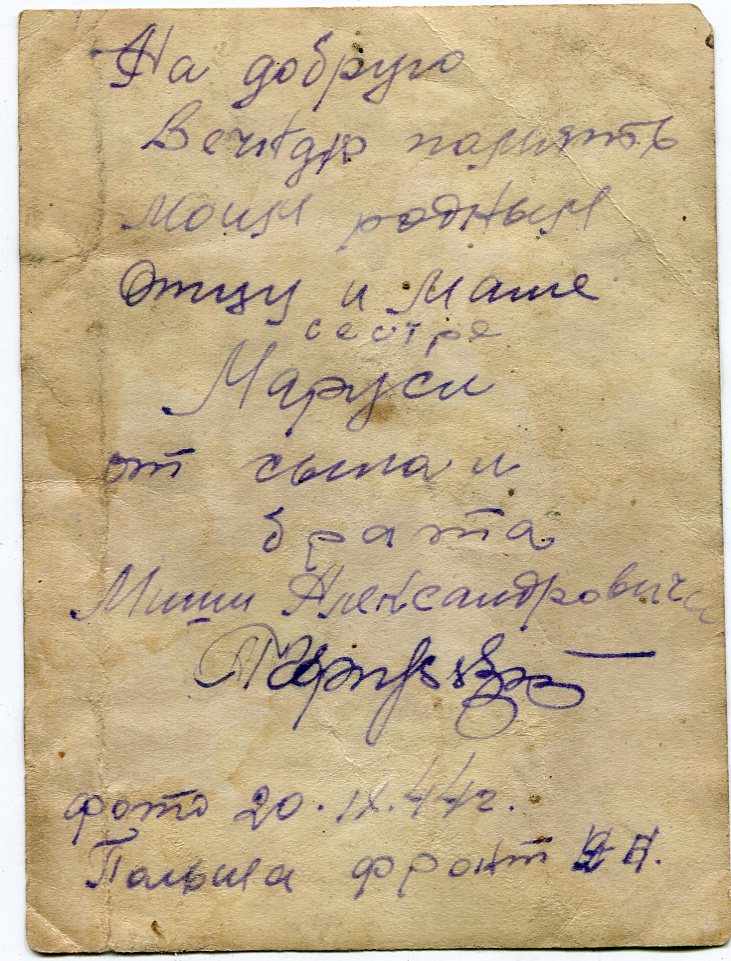 На добрую
Вечную память
моим родным
Отцу и Маше
сестре
Маруси
от сына и
брата
Миши Александровича
фото 20.IX.44г.
Польша фронт